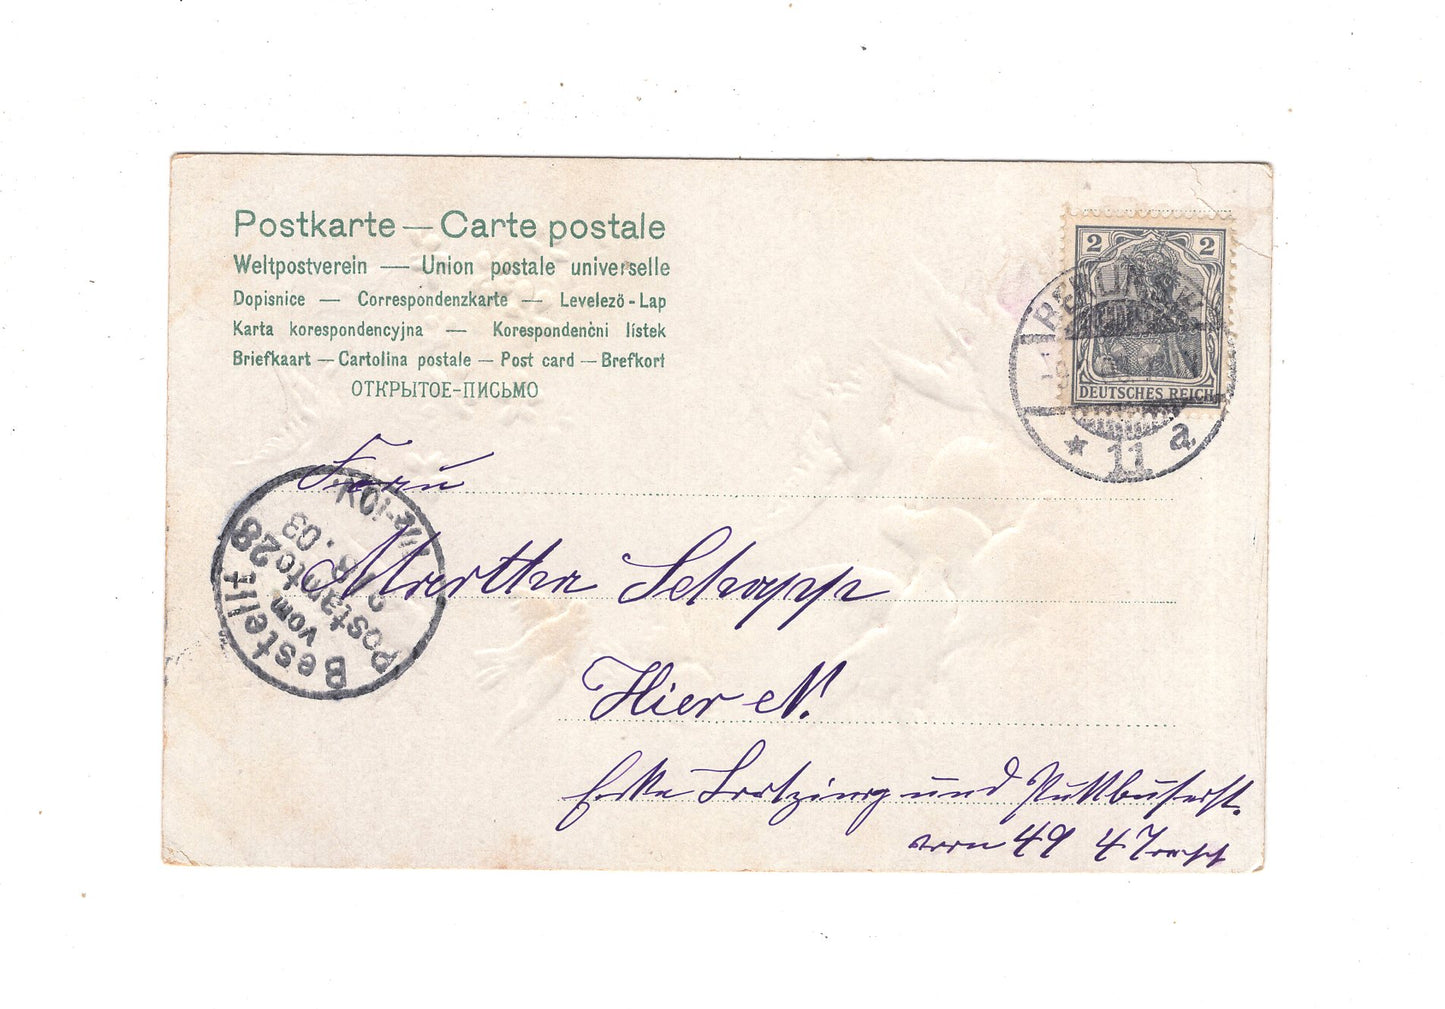 Postkarte — Carte postale
Weltpostverein — Union postale universelle
Dopisnice — Correspondenzkarte — Levelező-Lap
Karta korespondencyjna — Korespondenčni lístek
Briefkaart — Cartolina postale — Post card — Brefkort
ОТКРЫТОЕ-ПИСЬМО
2 2
DEUTSCHES REICH
BERLIN S.W.
* 11 a
Bestellt
vom
Postamte 28
.03
Frau
Martha Schapp
Hier N.
Ecke Lortzing und Puttbuserst.
vorn 49 4 Tr